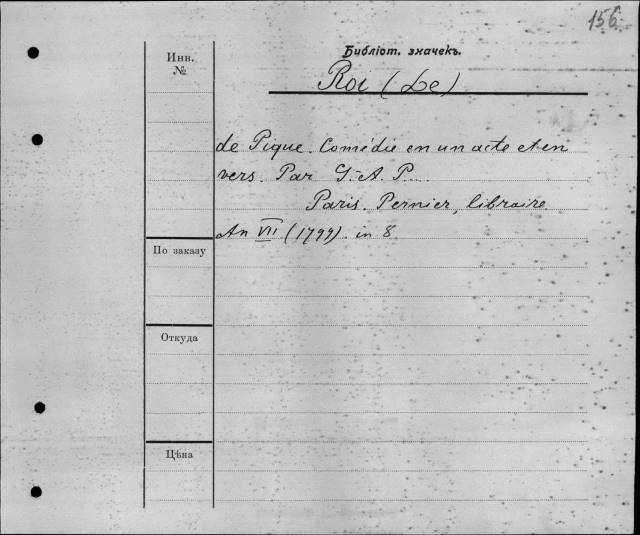 156
Библіот. значекъ.
Инв.
№
Roi (Le)
de Pique. Comédie en un acte et en
vers. Par G.-A. P...
Paris. Pernier, libraire
An VII (1799). in 8
По заказу
Откуда
Цѣна